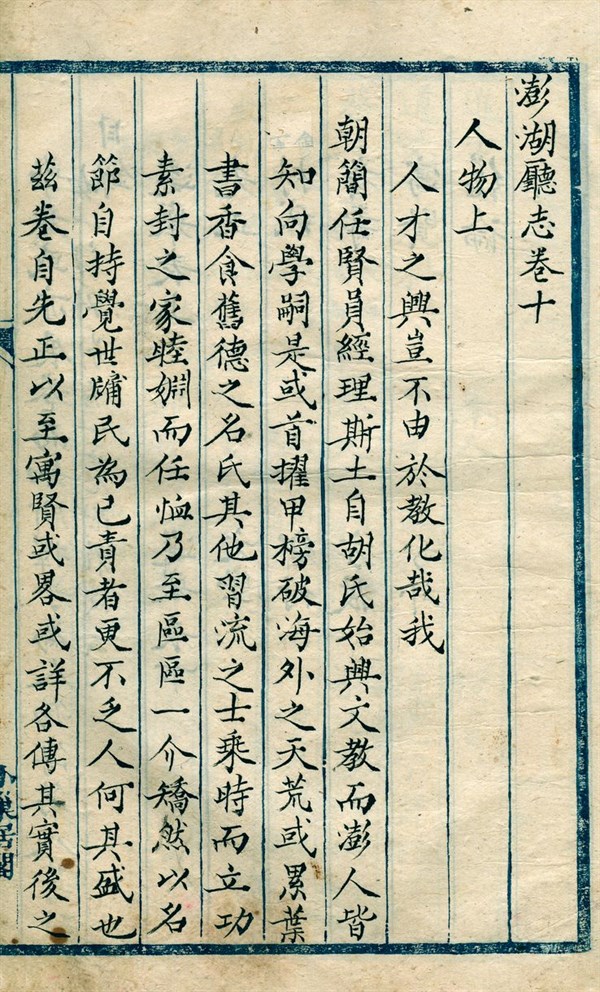 澎湖廳志卷十
人物上
人才之興豈不由於教化哉我
朝簡任賢員經理斯土自胡氏始興文教而澎人皆
知向學嗣是或首擢甲榜破海外之天荒或累葉
書香食舊德之名氏其他習流之士乘時而立功
素封之家睦婣而任恤乃至區區一介矯然以名
節自持覺世牖民為己責者更不乏人何其盛也
茲卷自先正以至寓賢或畧或詳各傳其實後之